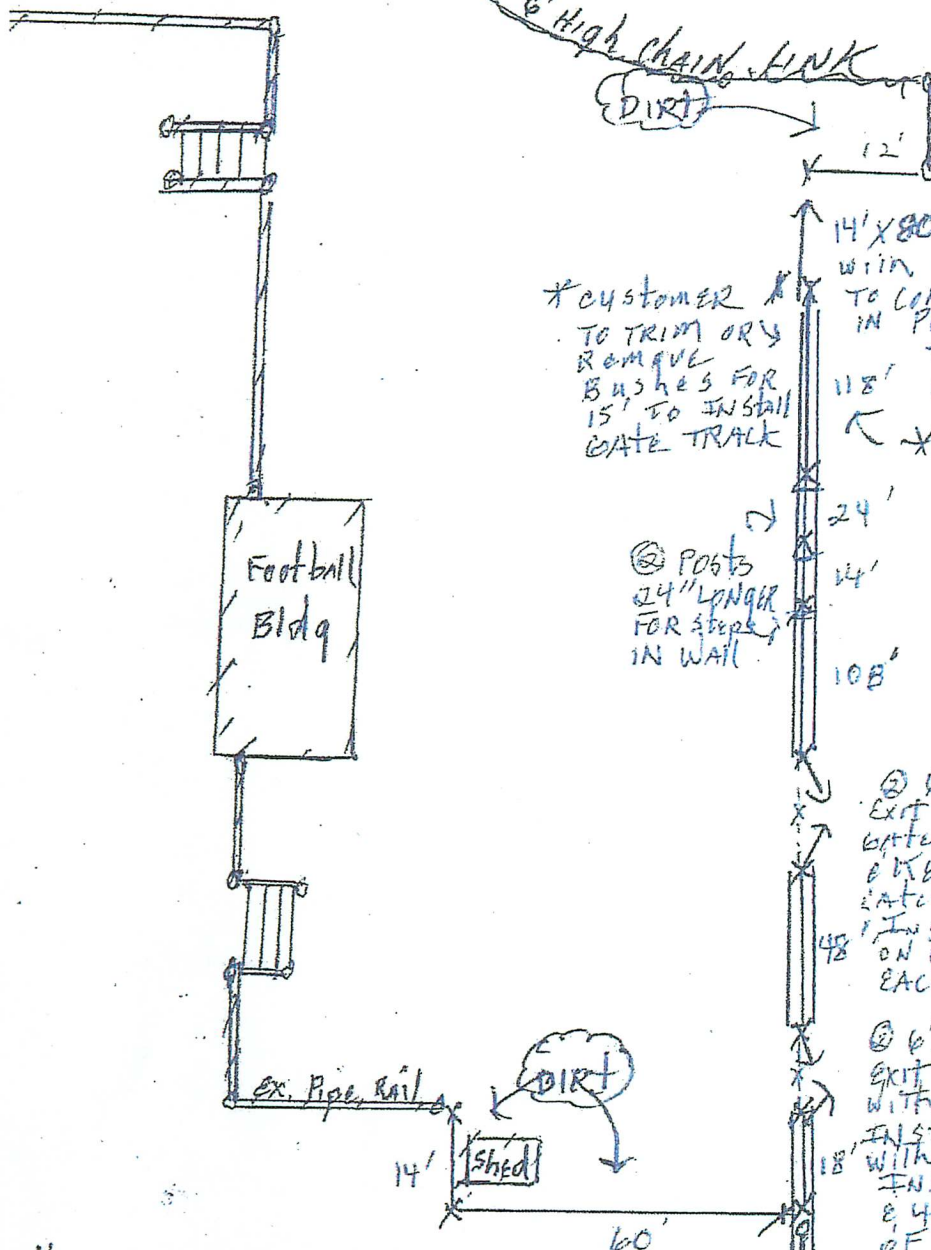 6' High CHAIN LINK
DIRT
12'
14' X 80
with
TO
IN P
* CUSTOMER
TO TRIM OR
REMOVE
BUSHES FOR
15' TO INSTALL
GATE TRACK
118'
*
24'
Football
Bldg
② POSTS
24" LONGER
FOR STEPS
IN WALL
14'
108'
②
EXIT
GATE
LATC
IN
48'
ON
EAC
② 6'
EXIT
WITH
INS
WITH
IN
& 4
OF
Ex. Pipe RAIL
DIRT
14'
Shed
18'
60'